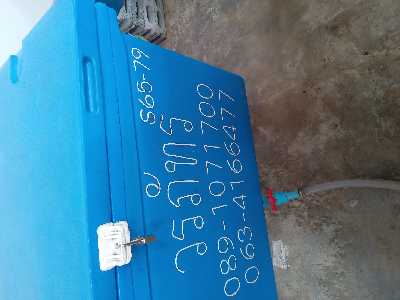 S65-79
วรภัทร
089-1071700
063-4166477